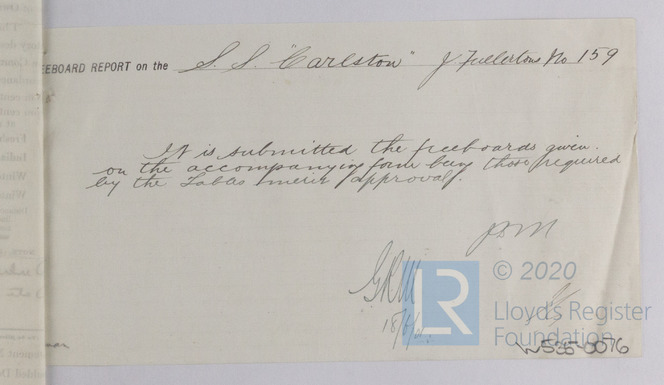 EEBOARD REPORT on the S. S. "Carlston" J Fullertons No 159
It is submitted the freeboards given
on the accompanying form being those required
by the Tables merit approval.
GRM
LR © 2020
Lloyd's Register
Foundation
W535-0076